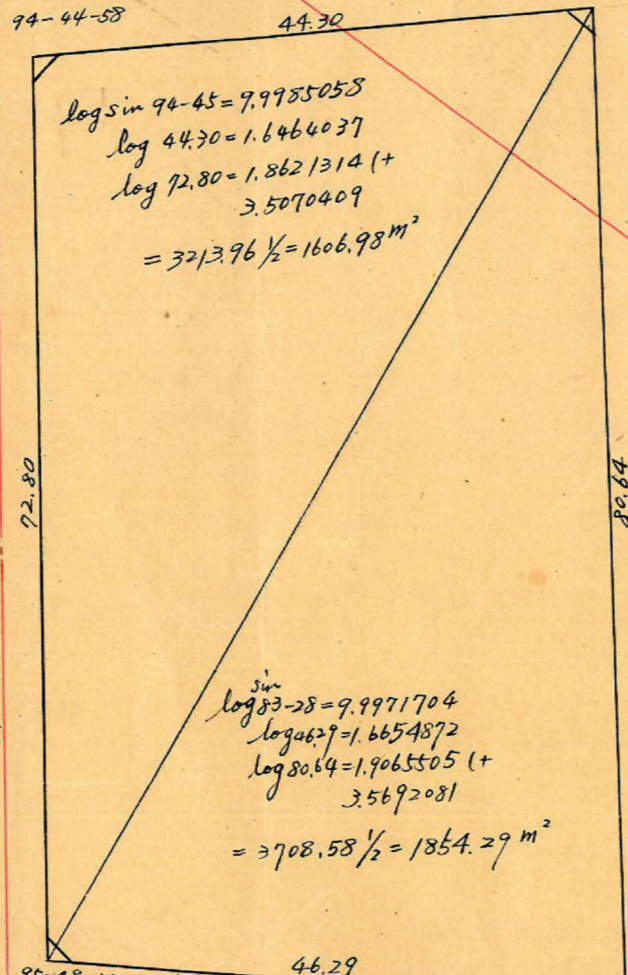 94-44-58
44.30
log sin 94-45 = 9.9985058
log 44.30 = 1.6464037
log 72.80 = 1.8621314 (+
3.5070409
= 3213.96 ½ = 1606.98 m²
72.80
80.64
sin
log 83-28 = 9.9971704
log 46.29 = 1.6654872
log 80.64 = 1.9065505 (+
3.5692081
= 3708.58 ½ = 1854.29 m²
46.29